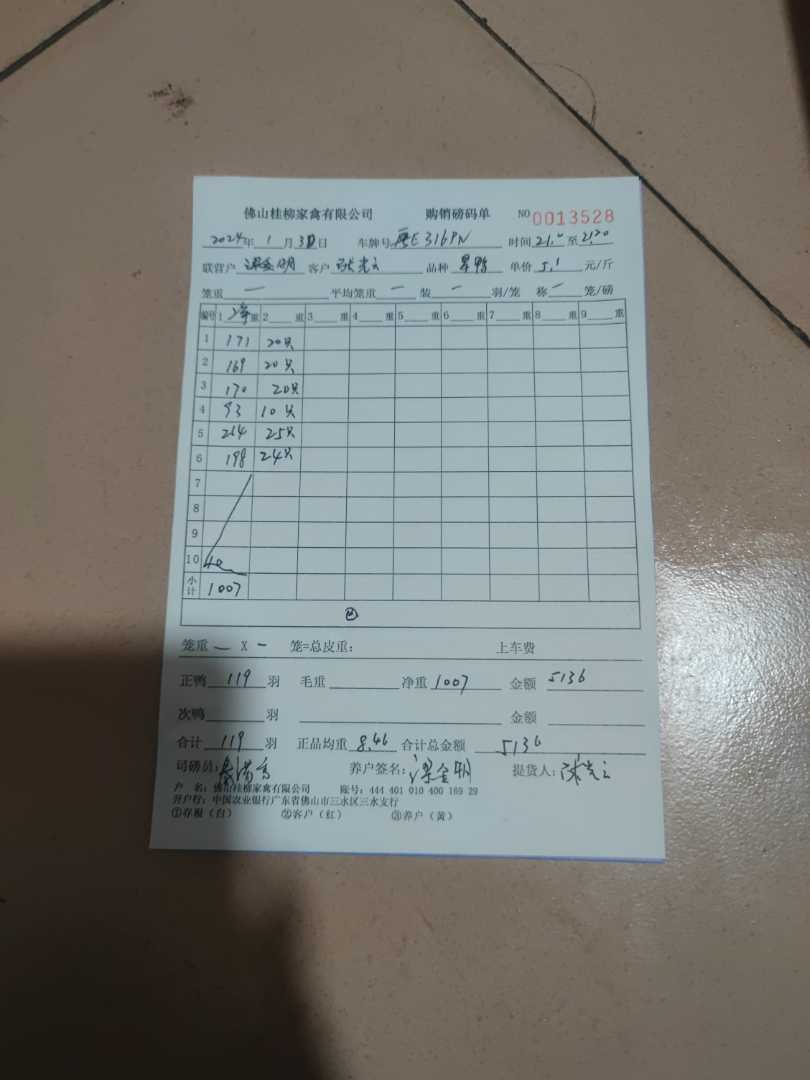 佛山桂柳家禽有限公司 购销磅码单 NO 0013528
2024年 1 月 31日 车牌号 粤E316PN 时间 21.0 至 21.20
联营户 客户 品种 单价 5.1 元/斤
笼重 — 平均笼重 — 装 — 羽/笼 称 — 笼/磅
编号 1 重 2 重 3 重 4 重 5 重 6 重 7 重 8 重 9 重
1 171 20只
2 169 20只
3 170 20只
4 93 10只
5 20 25只
6 198 24只
7
8
9
10
小计 1007
笼重 — X — 笼=总皮重: 上车费
正鸭 119 羽 毛重 净重 1007 金额 5136
次鸭 羽 金额
合计 119 羽 正品均重 8.46 合计总金额 5136
司磅员: 养户签名: 梁金明 提货人:
户 名: 佛山桂柳家禽有限公司 账号: 444 401 010 400 169 29
开户行: 中国农业银行广东省佛山市三水区三水支行
①存根(白) ②客户(红) ③养户(黄)